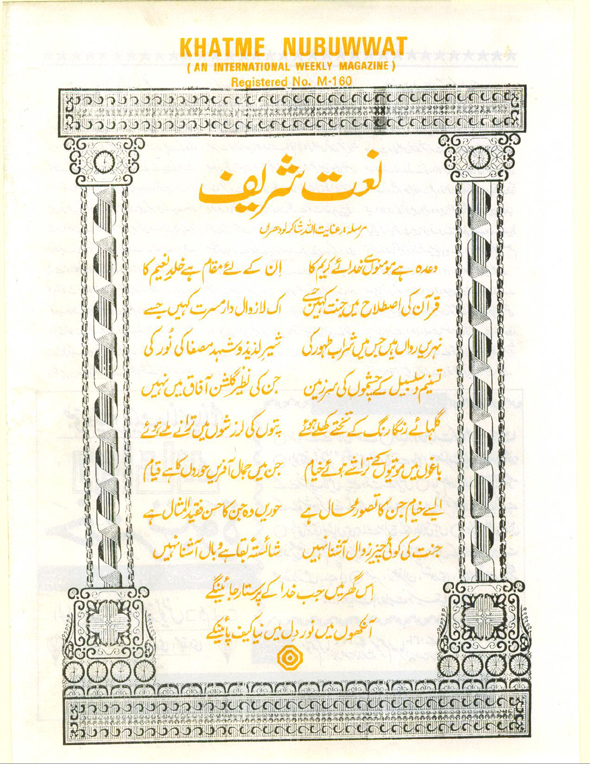 KHATME NUBUWWAT
( AN INTERNATIONAL WEEKLY MAGAZINE )
Registered No. M-160
نعت شریف
مرسلہ: عنایت اللہ شاکر لودھراں
وعدہ ہے مومنوں سے خدائے کریم کا ان کے لئے مقام ہے خلد نعیم کا
قرآن کی اصطلاح میں جنت کہیں جسے اک لازوال دار مسرت کہیں جسے
نہریں رواں ہیں جس میں شراب طہور کی شیر لذیذ و شہد مصفا کی نور کی
تسنیم و سلسبیل کے چشموں کی سرزمین جن کی نظیر گلشن آفاق میں نہیں
گلہائے رنگا رنگ کے تختے کھلے ہوئے پتوں کی لرزشوں میں ترانے ملے ہوئے
باغوں میں موتیوں کے تراشے ہوئے خیام جن میں جمال آفریں حوروں کا ہے قیام
ایسے خیام جن کا تصور محال ہے حوریں وہ جن کا حسن فقید المثال ہے
جنت کی کوئی چیز زوال آشنا نہیں شائستہ بقا ہے وبال آشنا نہیں
اس گھر میں جب خدا کے پرستار جائینگے
آنکھوں میں نور دل میں نیا کیف پائینگے